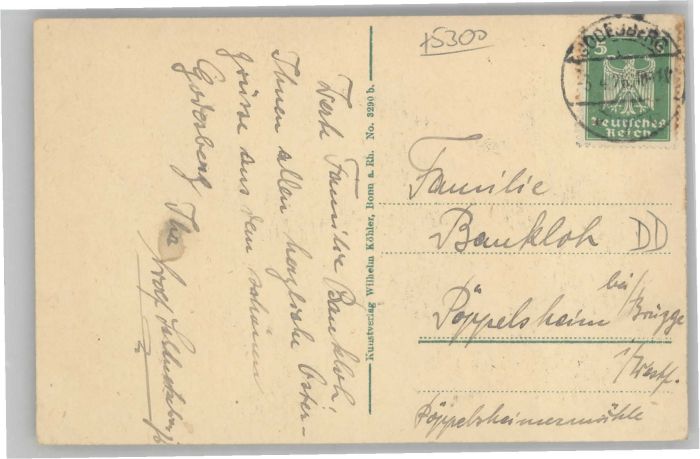 Werte Familie Bankloh!
Ihnen allen herzliche Oster-
grüsse aus dem schönen
Godesberg Ihr
Kunstverlag Wilhelm Köhler, Bonn a. Rh. No. 3290 b.
15300
GODESBERG
5
Deutsches
Reich
Familie
Bankloh
DD
Pöppelsheim bei/Brügge
i/Westf.
Pöppelsheimermühle